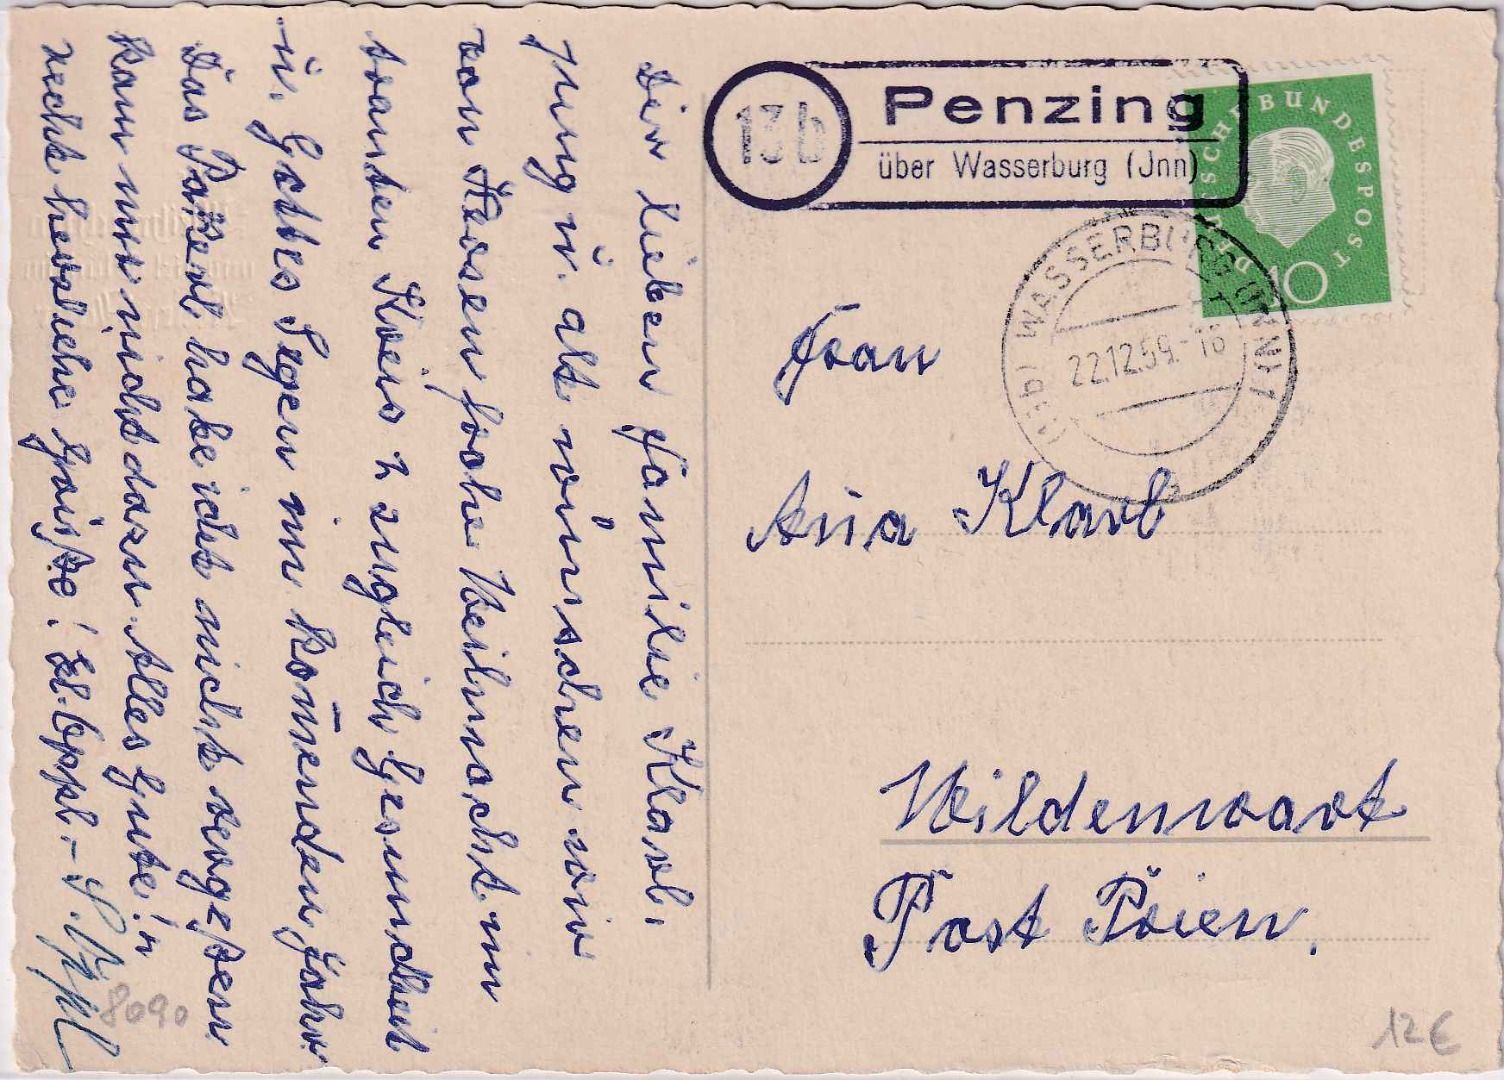 13b
Penzing
über Wasserburg (Jnn)
DEUTSCHE BUNDESPOST
10
(13b) WASSERBURG (INN) 1
22.12.59.-16
Frau
Ana Klarl
Wildenwart
Post Prien.
Dir lieben Familie Klarl,
Jung u. alt wünschen wir
von Herzen frohe Weihnacht im
trauten Kreis u zugleich Gesundheit
u. Gottes Segen im kom̄enden Jahr.
Das Patzerl habe ich nicht vergeßen
kam nur nicht dazu. Alles Gute! u
recht herzliche Grüße!
8090
12 €